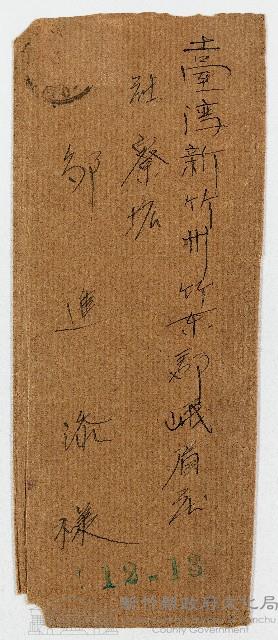 臺湾新竹州竹東郡峨眉庄
社藔坑
鄒進添樣
12-13
新竹縣政府文化局
County Government